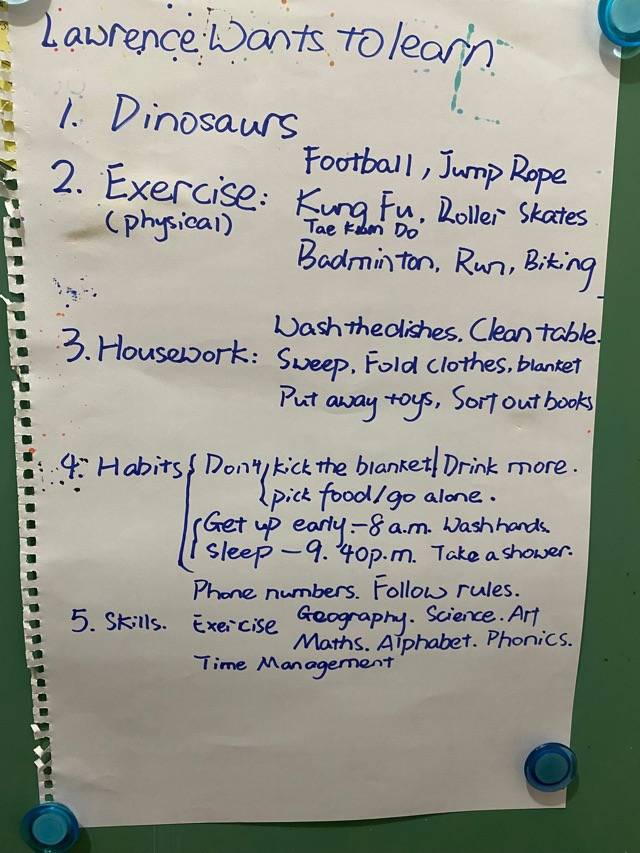 Lawrence Wants to learn
1. Dinosaurs
2. Exercise: Football, Jump Rope
(physical) Kung Fu, Roller Skates
Tae Kwn Do
Badminton, Run, Biking
3. Housework: Wash the dishes. Clean table.
Sweep, Fold clothes, blanket
Put away toys, Sort out books
4. Habits { Don't { kick the blanket / Drink more.
pick food / go alone.
{ Get up early - 8 a.m. Wash hands.
sleep - 9. 40 p.m. Take a shower.
Phone numbers. Follow rules.
5. Skills. Exercise Geography. Science. Art
Maths. Alphabet. Phonics.
Time Management